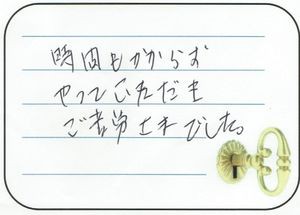 時間もかからず
やっていただき
ご苦労さまでした。